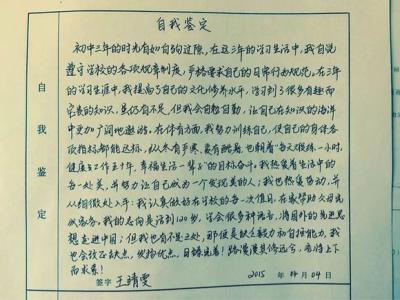 自我鉴定
自我鉴定
初中三年的时光有如白驹过隙，在这三年的学习生活中，我自觉
遵守学校的各项规章制度，严格要求自己的日常行为规范。在三年
的学习生涯中，我提高了自己的文化修养水平，学习到了很多有趣而
宝贵的知识，虽仍有不足，但我会自勉自勤，让自己在知识的海洋
中更加广阔地遨游。在体育方面，我努力训练自己，使自己的身体各
项指标都能达标，从冬有严寒、夏有酷暑，也朝着“每天锻炼一小时，
健康工作五十年，幸福生活一辈子”的目标奋斗。我热爱着生活中的
每一处美，并努力让自己成为一个发现美的人；我也热爱劳动，并
从细微处入手：我认真做好在学校的每一次值日，在家帮助父母完
成家务。我的志向是活到120岁，学会很多种语言，将国外的先进思
想走进中国；但我也有不足之处，那便是缺乏毅力和自控能力，我也
会改正缺点，发扬优点。自臻完善！路漫漫其修远兮，吾将上下
而求索！
签字 王靖雯 2015 年 04 月 04 日